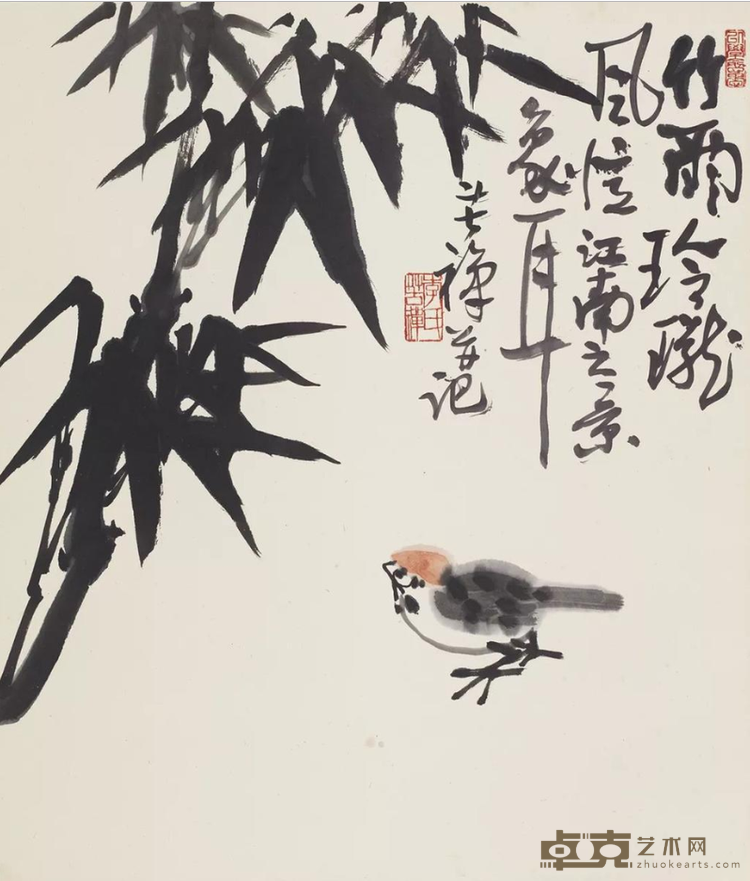 竹雨玲珑
风忆江南之景
象耳
苦禅并记
李氏苦禅
卓克艺术网
zhuokearts.com